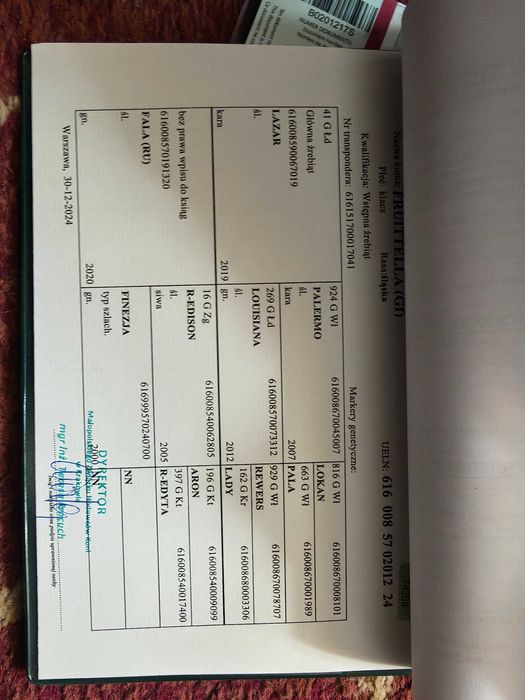 B0201217S
NUMER DOKUMENTU
74388
Nazwa konia: FRUITTELLA (GI)
Płeć: klacz Rasa:śląska UELN: 616 008 57 02012 24
Kwalifikacja: Wstępna źrebiąt
Nr transpondera: 616151700017041 Markery genetyczne:
41 G Ld
Główna źrebiąt
616008590067019
LAZAR
śl.
kara 2019
924 G Wł 616008670045007
PALERMO
śl.
kara 2007
816 G Wł 616008670008101
LOKAN
663 G Wł 616008670001989
PALA
269 G Ld 616008570073312
LOUISIANA
śl.
gn. 2012
929 G Wł 616008670078707
REWERS
162 G Kr 616008680003306
LADY
bez prawa wpisu do ksiąg
616008570191320
FALA (RU)
śl.
gn. 2020
16 G Zg 616008540062805
R-EDISON
śl.
siwa 2005
196 G Kt 616008540009099
ARON
397 G Kt 616008540017400
R-EDYTA
616999570240700
FINEZJA
typ szlach.
gn.
NN
NN
Warszawa, 30-12-2024
DYREKTOR
Małopolskiego Związku Hodowców Koni
w Krakowie
mgr inż.